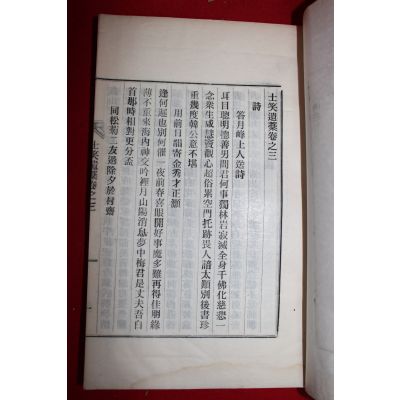 士笑遺藁卷之三
詩
答月峰上人送詩
耳目聰明德善男問君何事獨林岩寂滅全身千佛化慈悲一
念衆生咸慧資觀心超俗累空門托跡畏人諳太顚別後書珍
重幾度韓公意不堪
用前日韻寄金秀才正灝
逢何遲也別何催一夜前春喜眼開好事魔多難再得佳朋緣
薄不重來海內神交吟裡月山陽消息夢中梅君是丈夫吾白
首那時相對更分盃
同松菊三友過除夕於村齋
士笑遺藁卷之三